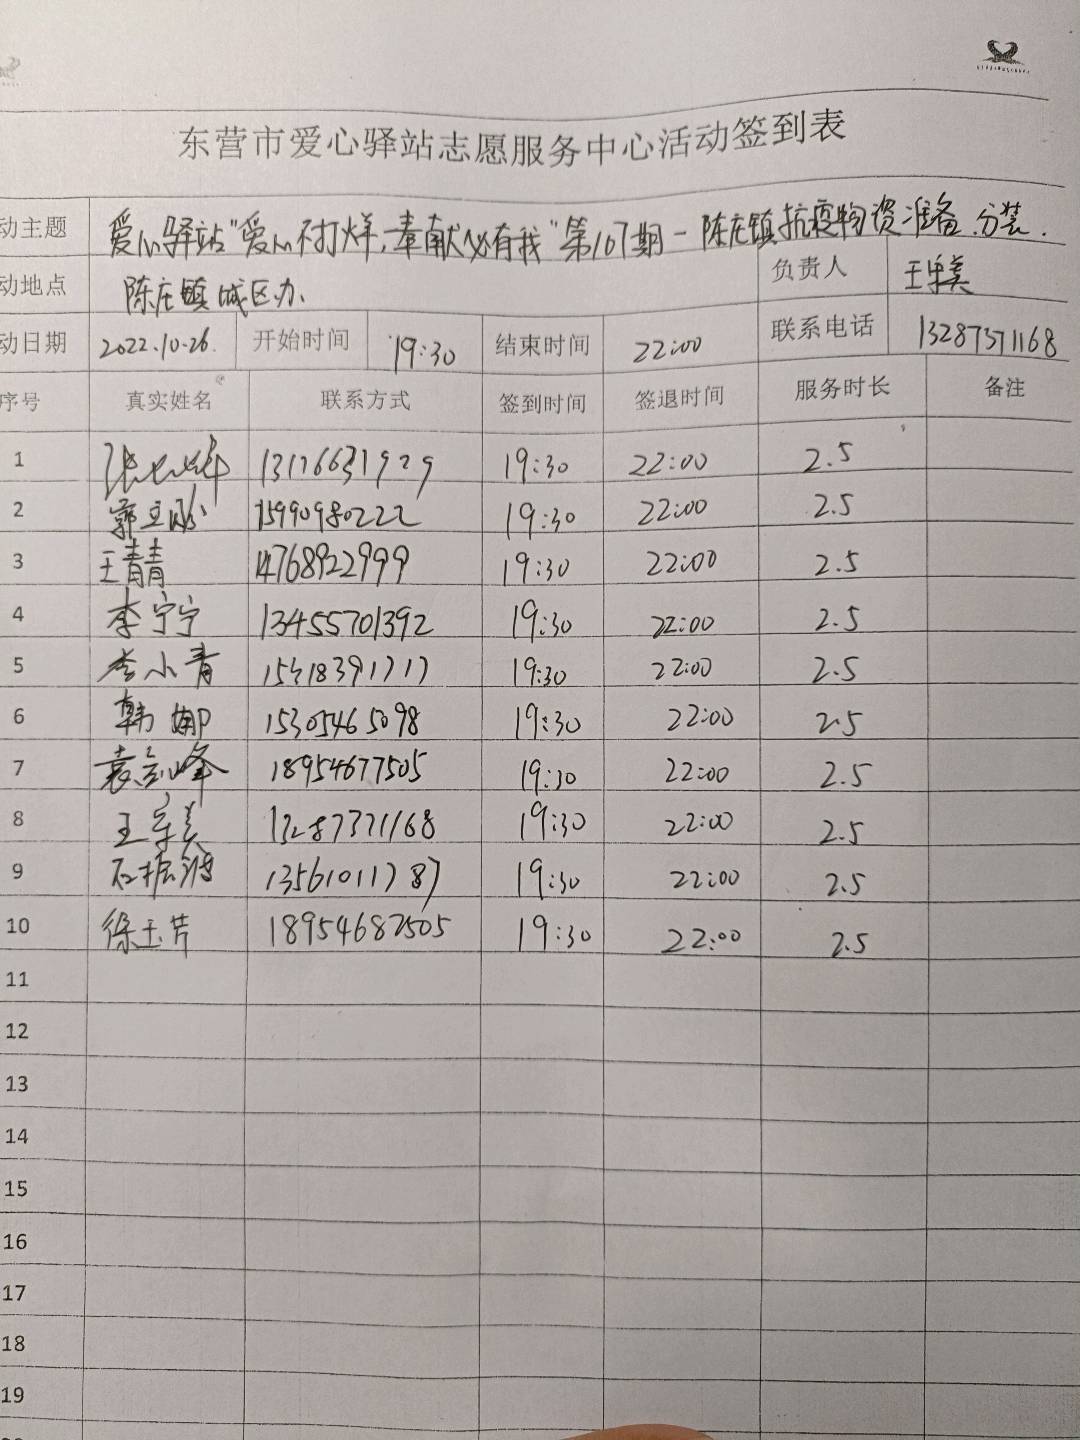 东营市爱心驿站志愿服务中心活动签到表
动主题 爱心驿站"爱心不打烊,奉献必有我"第107期-陈庄镇抗疫物资准备.分装.
动地点 陈庄镇城区办 负责人 王军美
动日期 2022.10.26. 开始时间 19:30 结束时间 22:00 联系电话 13287371168
序号 真实姓名 联系方式 签到时间 签退时间 服务时长 备注
1 13176631929 19:30 22:00 2.5
2 15990980222 19:30 22:00 2.5
3 王青青 14768922999 19:30 22:00 2.5
4 李宁宁 13455701392 19:30 22:00 2.5
5 李小青 19:30 22:00 2.5
6 韩娜 15305465098 19:30 22:00 2.5
7 18954677505 19:30 22:00 2.5
8 王军美 13287371168 19:30 22:00 2.5
9 13561011787 19:30 22:00 2.5
10 徐玉芹 18954687505 19:30 22:00 2.5
11
12
13
14
15
16
17
18
19